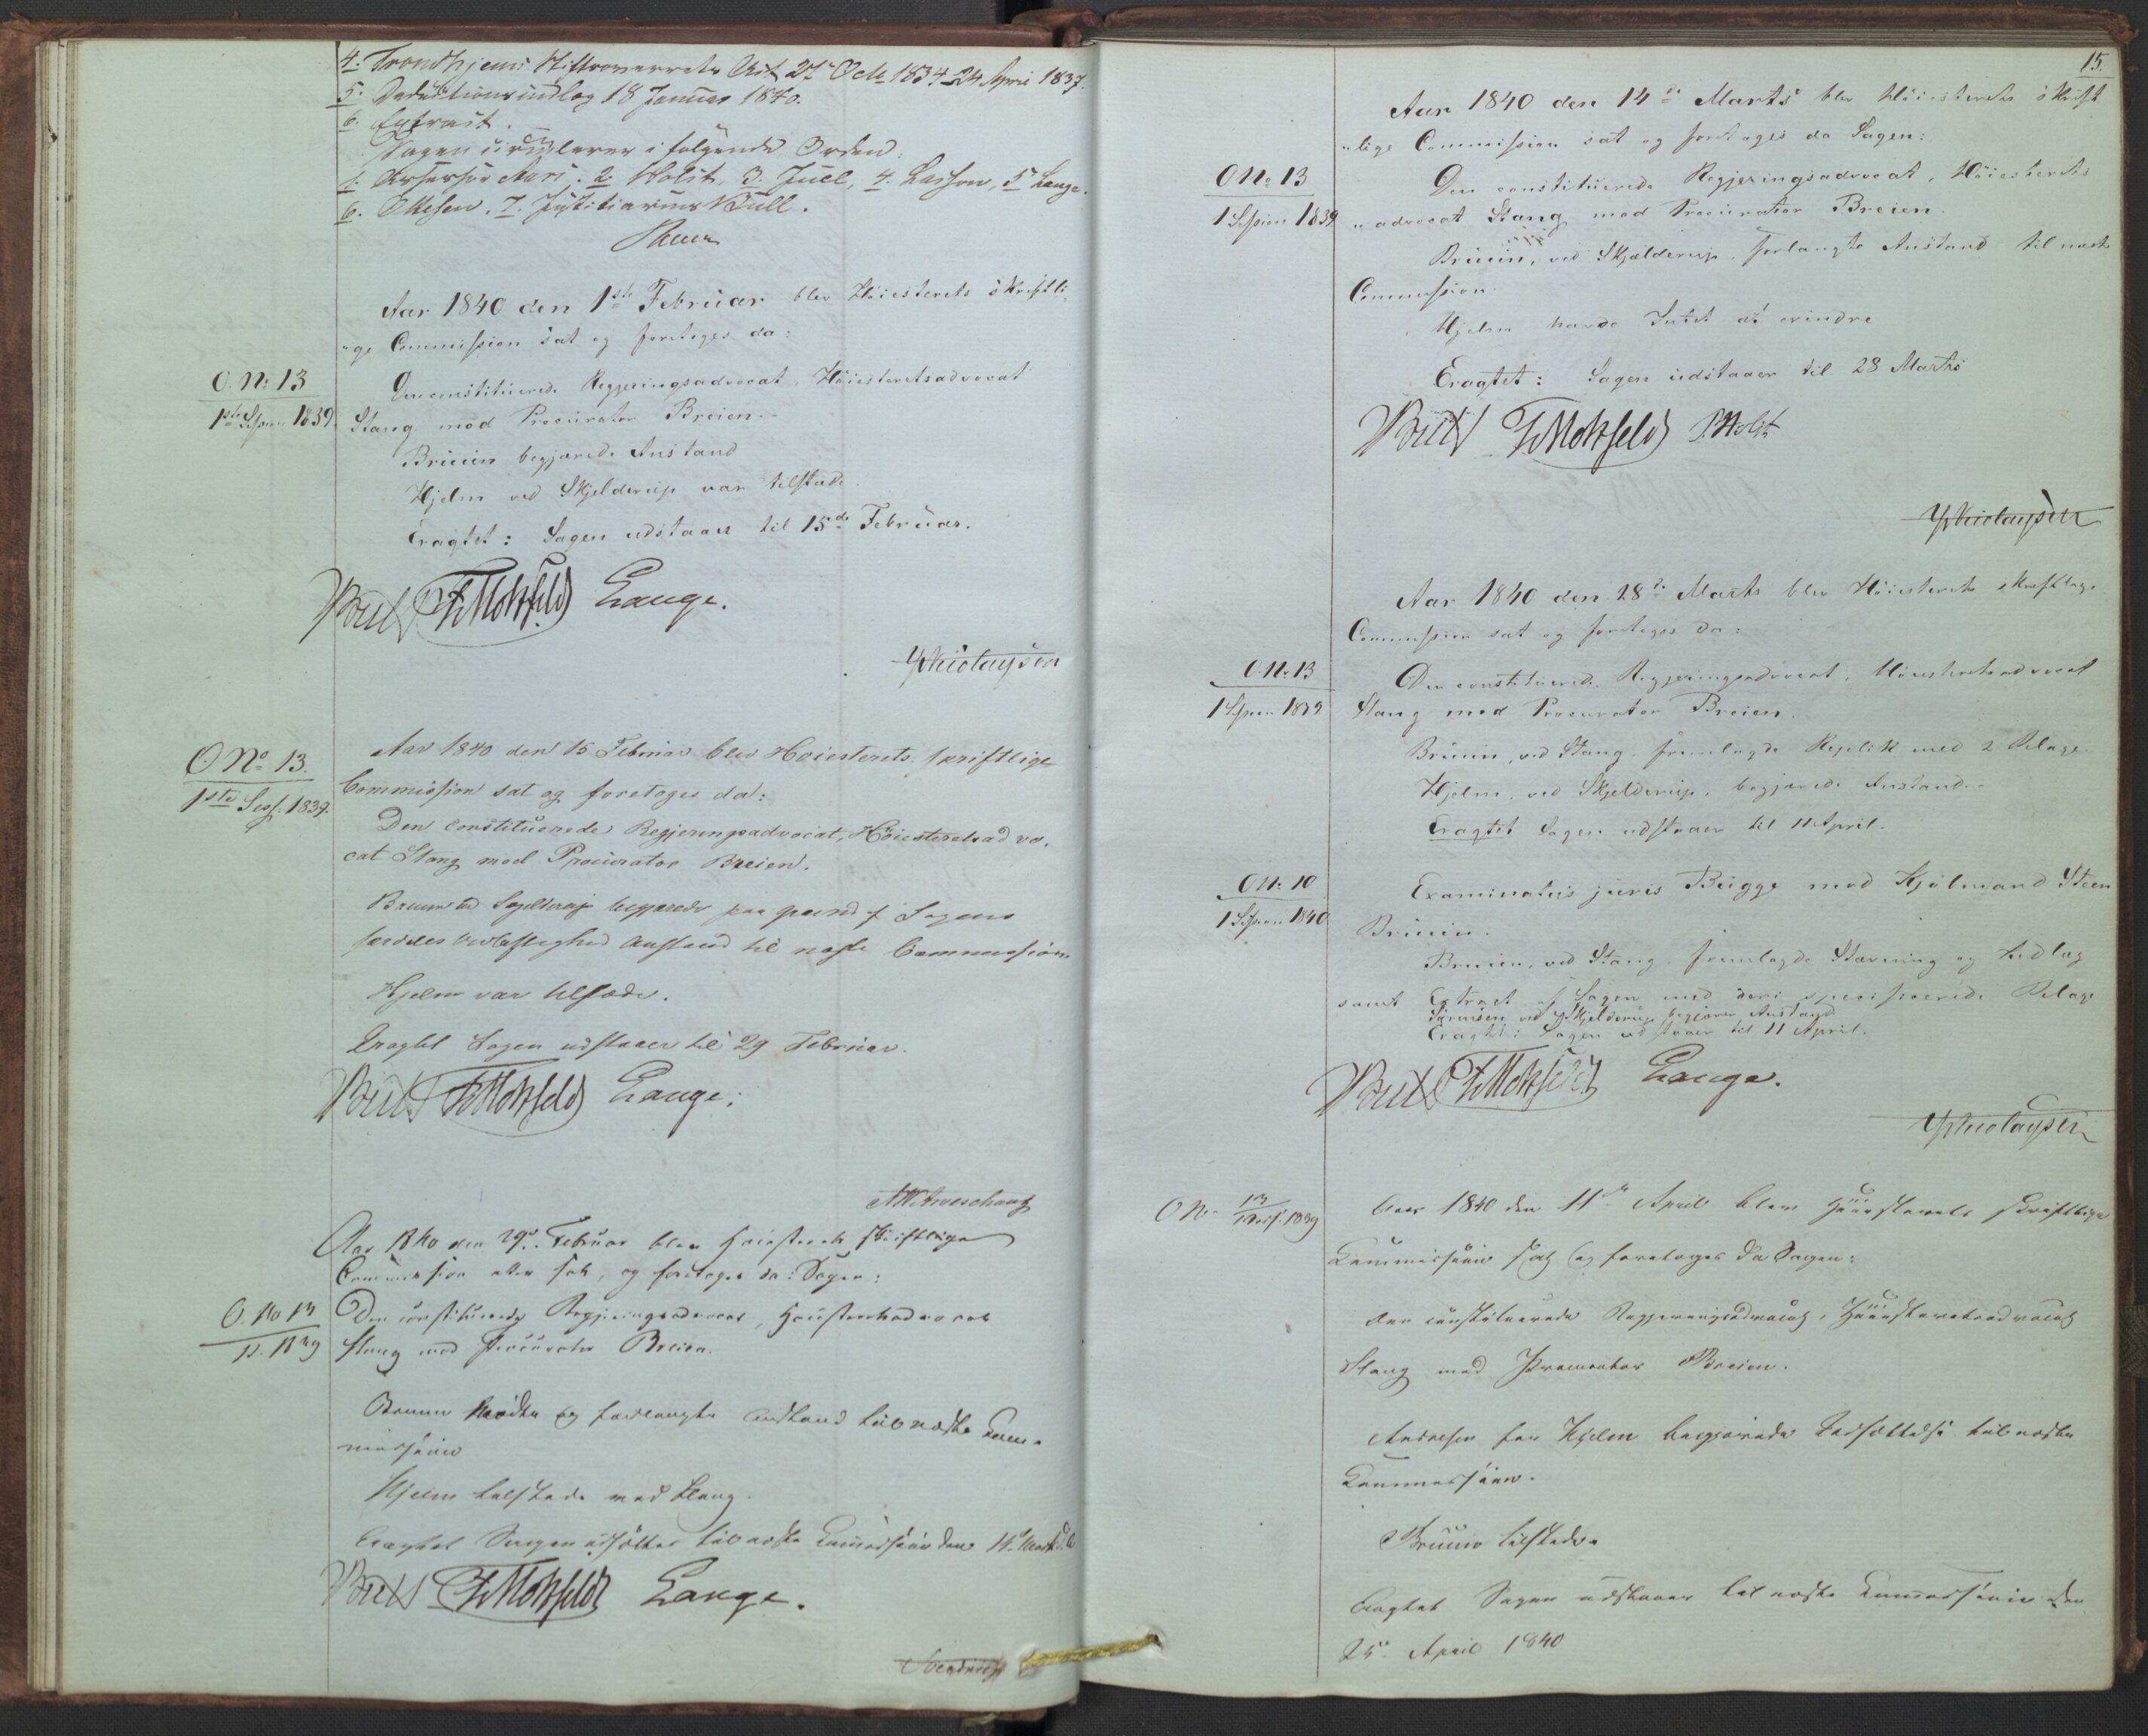 4. Trondhjems Stiftsoverrets Act 27 Octr 1834 - 24 April 1837.
5. Deductionsindlæg 18 Januar 1840.
6. Extract.
Sagen circulerer i følgende Orden:
1. Assessor 2. Holst, 3. Juel, 4. Lasson, 5 Lange.
6. Ottesen. 7. Justitiarius Bull.
Aar 1840 den 1ste Februar blev Höiesterets skriftli-
"ge Commission sat og foretoges da:
O. No 13
1ste Session 1839.
Den constituerede Regjeringsadvocat, Höiesteretsadvocat
Stang mod Procurator Breien.
Bruun begjærede Anstand
Hjelm ved Skjelderup var tilstæde.
Eragtet: Sagen udstaaer til 15de Februar.
Bull FMotzfeldt Lange.
Nicolaysen
O No 13.
1ste Sess. 1839.
Aar 1840 den 15 Februar blev Høiesterets skriftlige
Commission sat og foretoges da:
Den constituerede Regjeringsadvocat, Höiesteretsadvo-
cat Stang mod Procurator Breien.
Bruun ved Skjelderup begjærede paa Grund af Sagens
særdeles Vidtløftighed Anstand til næste Commission
Hjelm var tilstæde.
Eragtet Sagen udstaaer til 29 Februar.
Bull FMotzfeldt Lange.
Aar 1840 den 29de Februar blev Høiesterets skriftlige
Commission atter sat, og foretoges da: Sagen:
O. No 13
1 S. 1839
Den constituerede Regjeringsadvocat, Høiesteretsadvocat
Stang mod Procurator Breien.
Bruun mødte og forlangte Anstand til næste Com-
mission
Hjelm tilstede med Stang.
Eragtet Sagen udsættes til næste Commission den 14de Marts
Bull FMotzfeldt Lange.
15.
Aar 1840 den 14de Marts blev Höiesterets skrift
"lige Commission sat og foretoges da Sagen:
O No 13
1 Session 1839
Den constituerede Regjeringsadvocat, Höiesterets
"advocat Stang mod Procurator Breien.
Bruun, ved Skjelderup, forlangte Anstand til næste
Commission.
Hjelm havde Intet at erindre
Eragtet: Sagen udstaaer til 28 Marts
Bull FMotzfeldt P. Holst
Nicolaysen
Aar 1840 den 28de Marts blev Höiesterets skriftlige
Commission sat og foretoges da:
O No 13
1 Session 1839
Den constituerede Regjeringsadvocat, Höiesteretsadvocat
Stang mod Procurator Breien.
Bruun, ved Stang, fremlagde Replik med 2 Bilage
Hjelm, ved Skjelderup, begjærede Anstand.
Eragtet Sagen udstaaer til 11 April.
O No 10
1 Session 1840
Examinatus juris Bugge mod Kjøbmand Steen
Bruun.
Bruun, ved Stang, fremlagde Stævning og Indlæg
samt Extract af Sagen med deri specificerede Bilage
Sørensen ved Skjelderup begjærer Anstand
Eragtet: Sagen udstaaer til 11 April.
Bull FMotzfeldt Lange.
Nicolaysen
O No 13
1 Sess. 1839
Aar 1840 den 11te April blev Höiesterets skriftlige
Commission sat og foretoges da Sagen:
Den constituerede Regjeringsadvocat, Höiesteretsadvocat
Stang mod Procurator Breien.
Andresen for Hjelm begjærede Udsættelse til næste
Commission.
Bruun tilstede.
Eragtet Sagen udstaaer til næste Commission den
25de April 1840